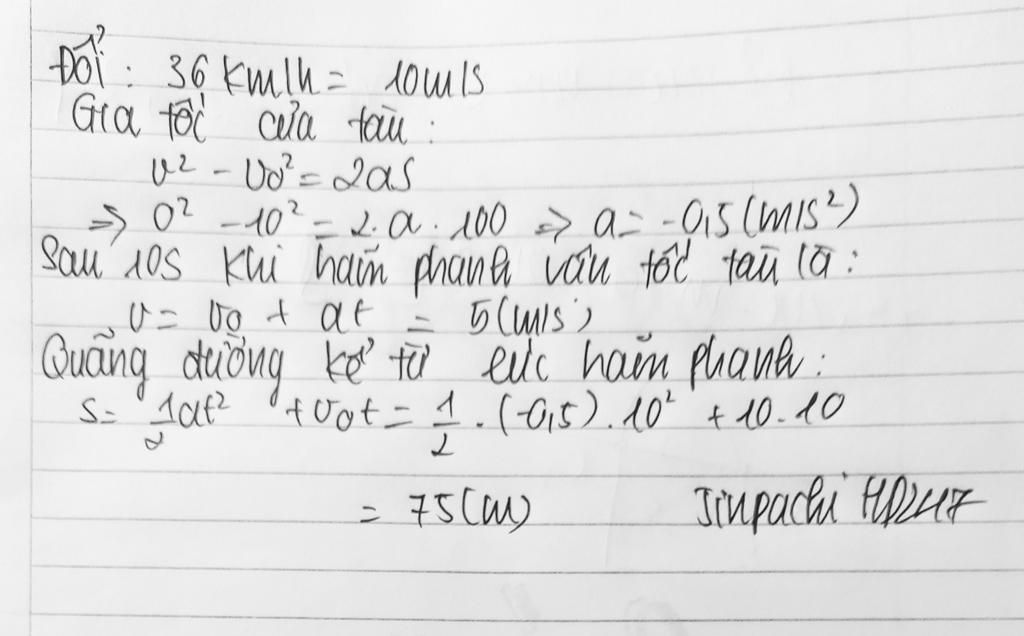 Đổi: 36 km/h = 10m/s
Gia tốc của tàu:
v² - v₀² = 2as
=> 0² - 10² = 2.a.100 => a = -0,5 (m/s²)
Sau 10s khi hãm phanh vân tốc tàu là:
v = v₀ + at = 5 (m/s)
Quãng đường kể từ lúc hãm phanh:
s = 1/2at² + v₀t = 1/2 . (-0,5) . 10² + 10.10
= 75 (m) Jinpachi HD247